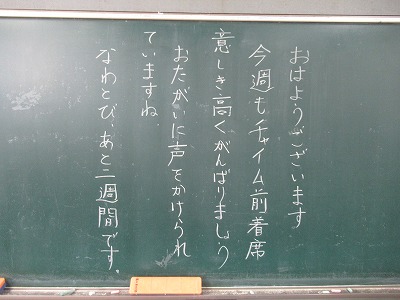 おはようございます
今週もチャイム前着席
意しき高くがんばりましょう
おたがいに声をかけられ
ていますね。
なわとび、あと二週間です。